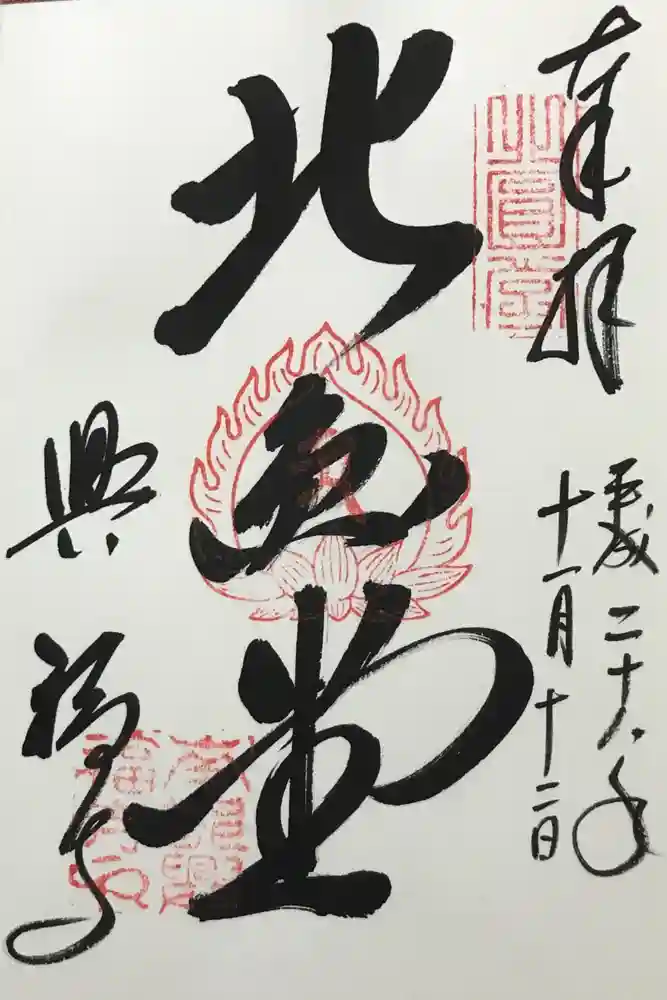 奉拝
平成二十八年
十一月十二日
北圓堂
北円堂
興福寺